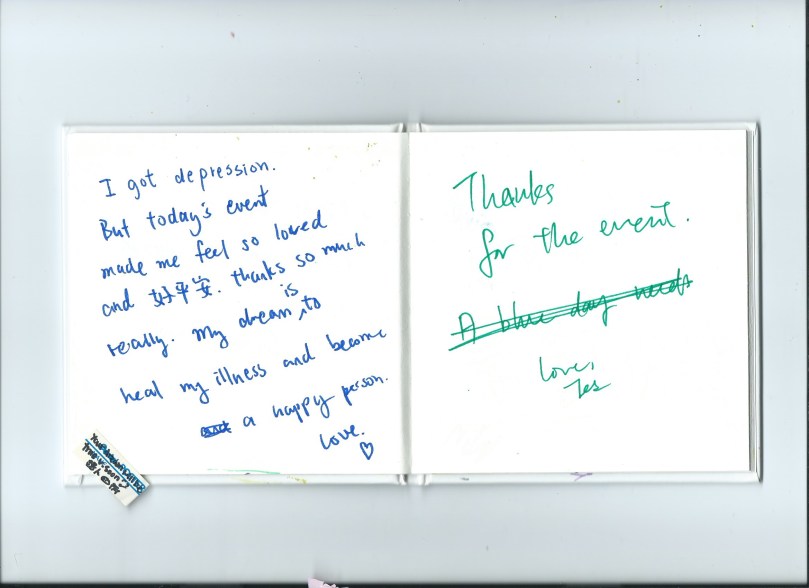 I got depression.
But today's event
made me feel so loved
and 好平安. thanks so much
really. My dream is to
heal my illness and become
a happy person.
Love.
Thanks
for the event.
A blue day needs
Love,
Jes